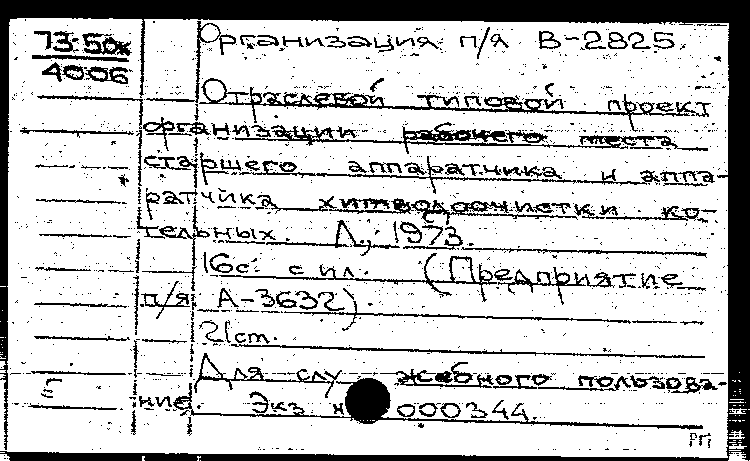 73-50к
4006
Организация п/я В-2825.
Отраслевой типовой проект
организации рабочего места
старшего аппаратчика и аппа-
ратчика химводоочистки ко-
тельных. Л., 1973.
16с. с ил. (Предприятие
п/я А-3632).
21см.
Для слу жебного пользова-
ние. Экз н 000344.